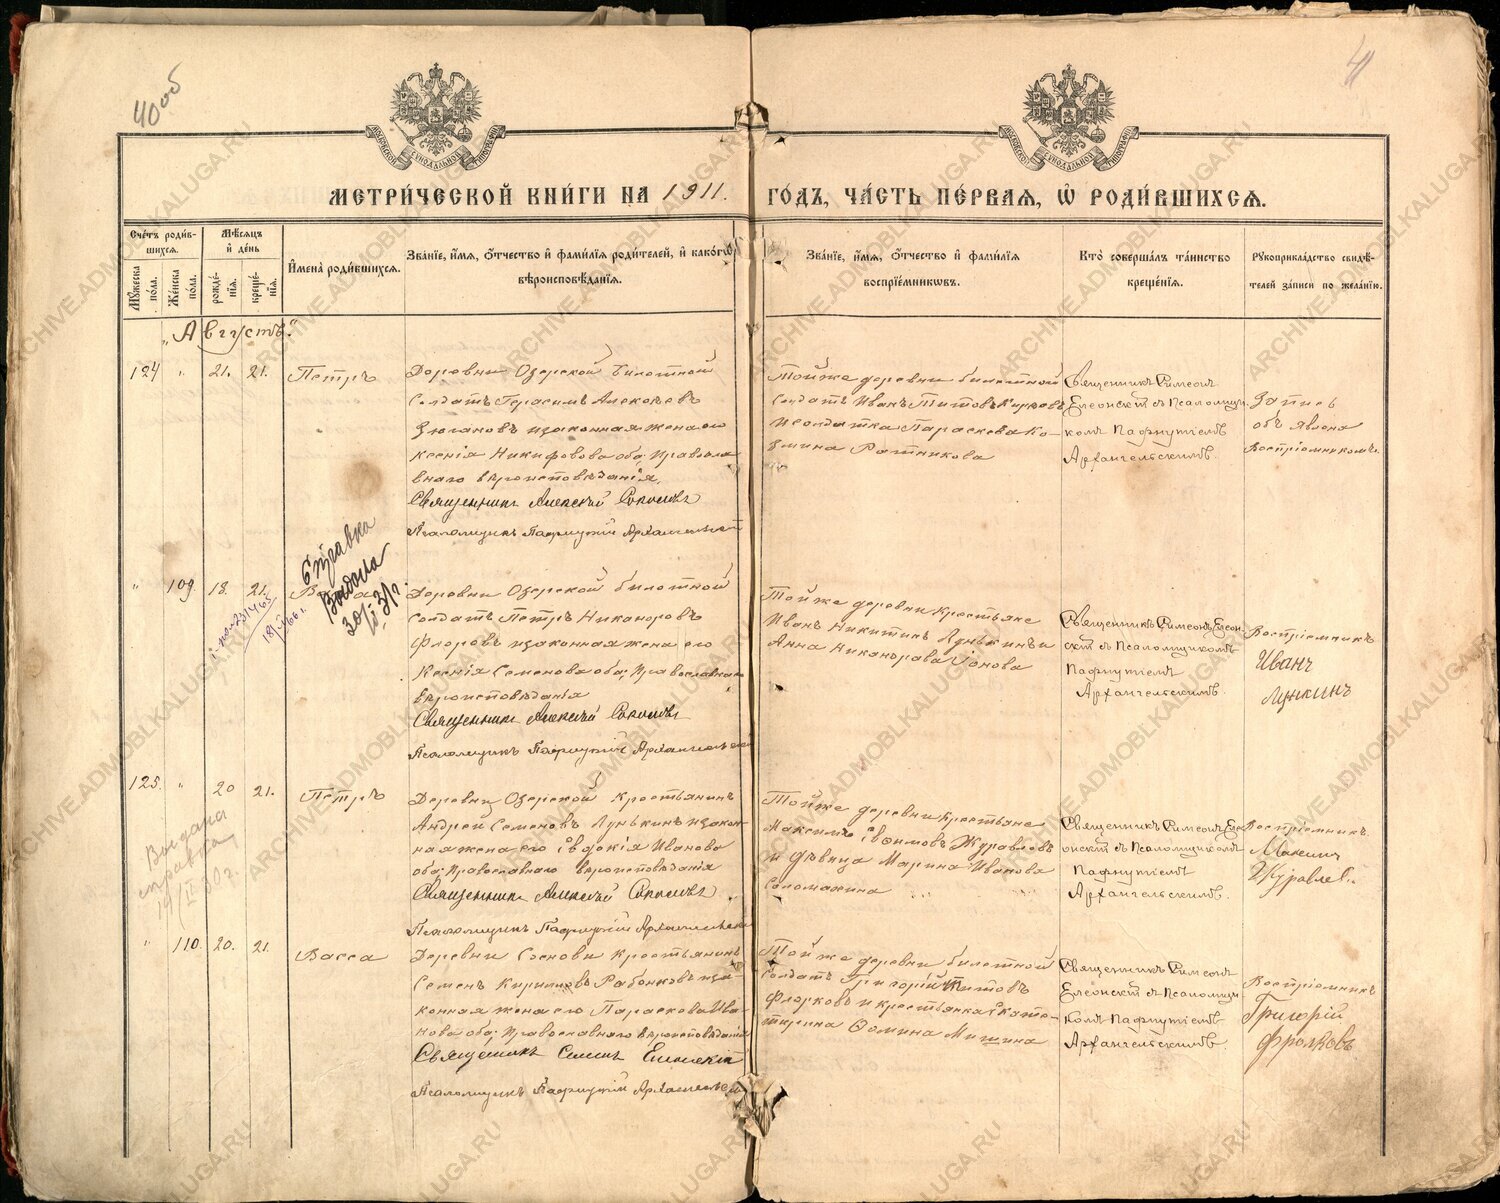 40 об
41
МЕТРИ́ЧЕСКОЙ КНИ́ГИ НА 1911.
ГО́ДЪ, ЧА́СТЬ ПЕ́РВАЯ, Ѡ҆ РОДИ́ВШИХСѦ.
Сче́тъ роди́в-
шихся.
Мѣ́сяцъ
и҆ де́нь
Мꙋ́жеска по́ла.
Же́нска по́ла.
рожде́-
нїя.
креще́-
нїя.
И҆мена̀ роди́вшихся.
Зва́нїе, и҆́мя, ѻ҆́тчество и҆ фами́лїя роди́телей, и҆ како́гѡ
вѣроисповѣ́данїя.
Зва́нїе, и҆́мя, ѻ҆́тчество и҆ фами́лїя
воспрїе́мниковъ.
Кто̀ соверша́лъ та́инство
креще́нїя.
Рꙋкоприкла́дство свидѣ́-
телей за́писи по жела́нїю.
„Августъ“
124 " 21. 21. Петръ
Деревни Озерской билетной
солдатъ Герасимъ Алексѣевъ
Зюгановъ и законная жена его
Ксенія Никифорова оба православ
наго вѣроисповѣданія.
Священникъ Алексѣй Соколовъ
Псаломщикъ Пафнутій Архангельскій
Той же деревни билетной
солдатъ Иванъ Титовъ
и солдатка Параскева Ко-
змина Ратникова
Священникъ Симеонъ
Елеонскій съ Псаломщи-
комъ Пафнутіемъ
Архангельскимъ.
Запись
объявлена
Воспріемникомъ.
" 109 18. 21. Васса
Справка
Выдана
30/I 31 г.
Деревни Озерской билетной
солдатъ Петръ Никаноровъ
Флоровъ и законная жена его
Ксенія Семенова оба; Православнаго
вѣроисповѣданія
Священникъ Алексѣй Соколовъ
Псаломщикъ Пафнутій Архангельскій
Той же деревни крестьяне
Иванъ Никитинъ Лунькинъ и
Анна Никанорова Іонова
Священникъ Симеонъ Елеон-
скій съ Псаломщикомъ
Пафнутіемъ
Архангельскимъ.
Воспріемникъ
Иванъ
Лункинъ
125. " 20 21. Петръ
Выдана
справка
Деревни Озерской Крестьянинъ
Андрей Семеновъ Лунькинъ и закон-
ная жена его Евдокія Иванова
оба; Православнаго вѣроисповѣданія
Священникъ Алексѣй Соколовъ
Псаломщикъ Пафнутій Архангельскій
Той же деревни Крестьяне
Максимъ Евфимовъ Журавлевъ
и дѣвица Марина Иванова
Соломахина
Священникъ Симеонъ Еле-
онскій съ Псаломщикомъ
Пафнутіемъ
Архангельскимъ.
Воспріемникъ.
Максимъ
Журавлевъ.
" 110. 20. 21. Васса
Деревни Сосновки Крестьянинъ
Семенъ Кирилловъ Рабонковъ и за-
конная жена его Параскева Ива-
нова оба; Православнаго вѣроисповѣданія
Священникъ Симеонъ Елеонскій
Псаломщикъ Пафнутій Архангельскій
Той же деревни билетной
солдатъ Григорій Титовъ
Флорковъ и крестьянка Екате-
рина Ѳомина Мишина
Священникъ Симеонъ
Елеонскій съ Псаломщи-
комъ Пафнутіемъ
Архангельскимъ.
Воспріемникъ
Григорій
Фролковъ
ARCHIVE.ADMOBLKALUGA.RU